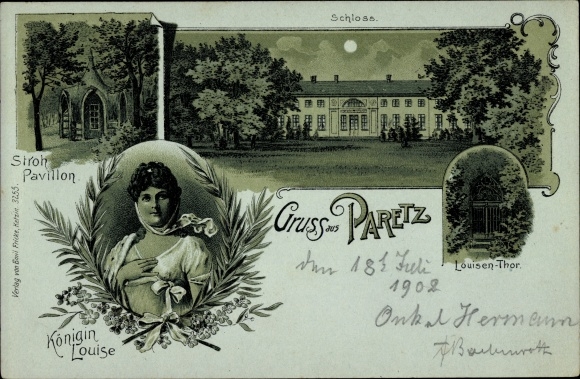 Schloss.
Stroh
Pavillon.
Gruss aus PARETZ
Louisen-Thor.
Königin
Louise
Verlag von Paul Fricke, Ketzin. 3255.
den 18t Juli
1902
Onkel Hermann